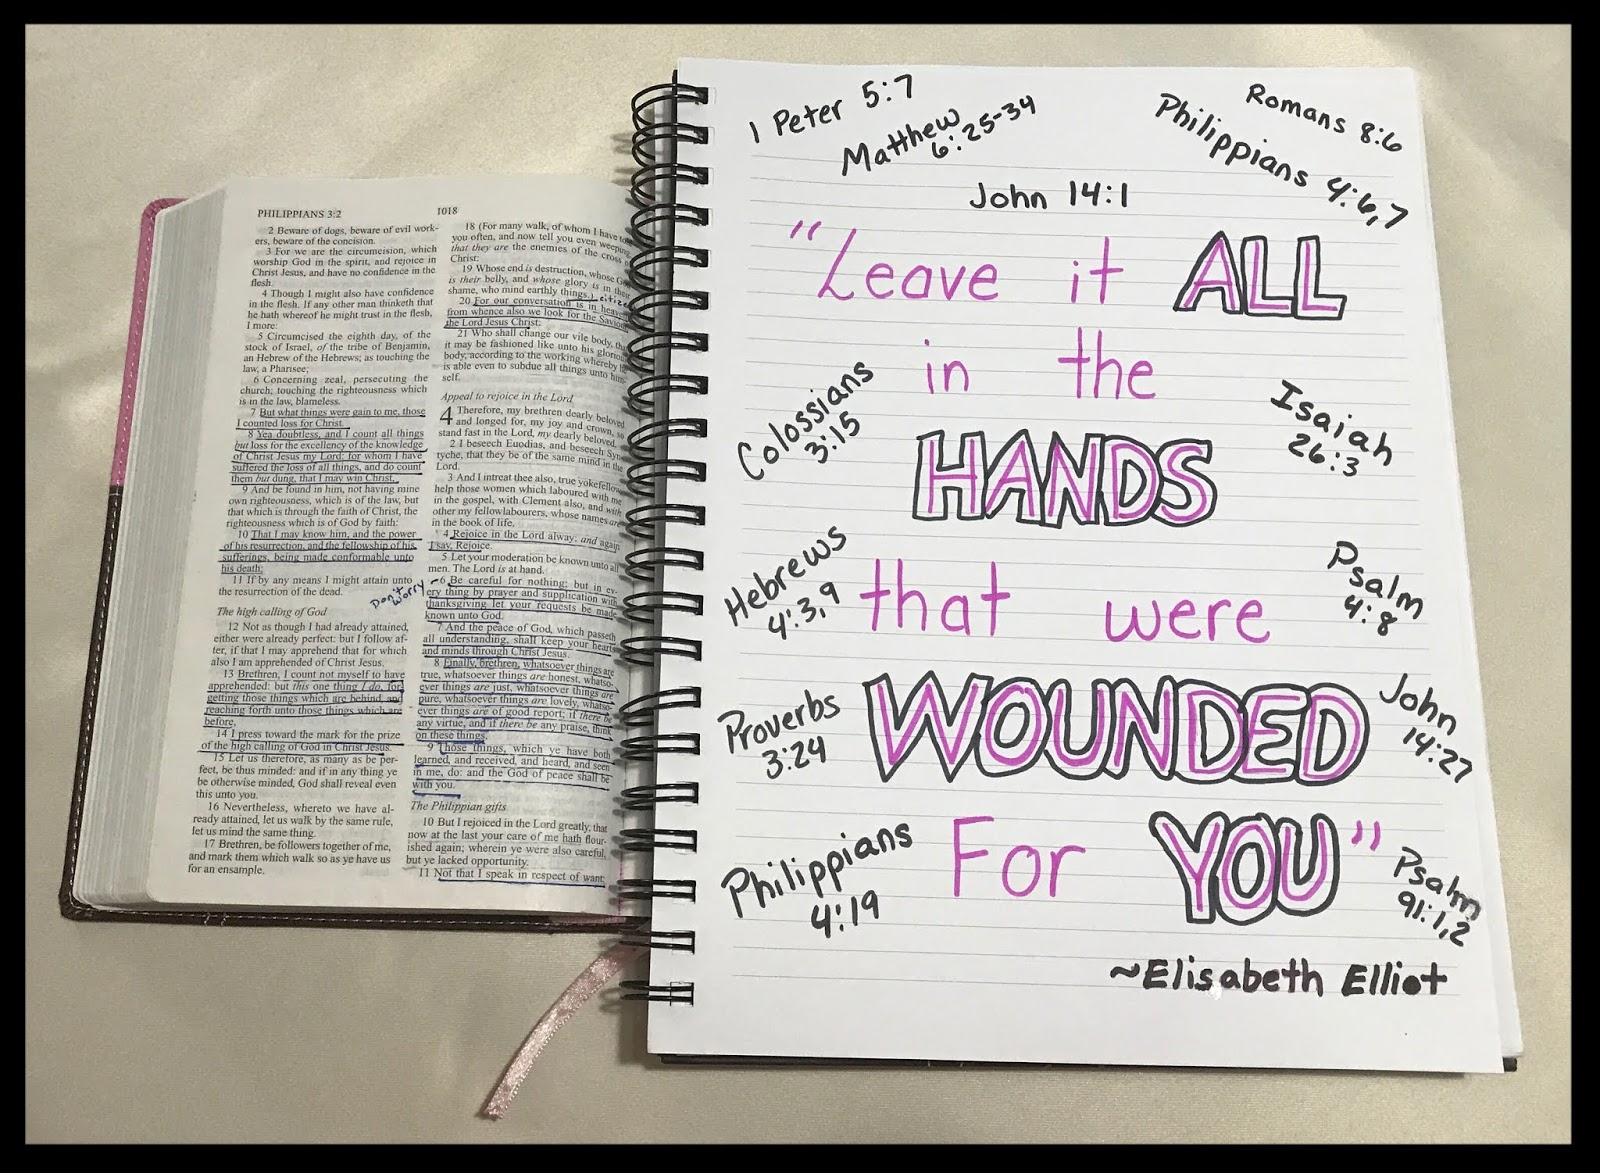 PHILIPPIANS 3:2
1018
2 Beware of dogs, beware of evil work-
ers, beware of the concision.
3 For we are the circumcision, which
worship God in the spirit, and rejoice in
Christ Jesus, and have no confidence in the
flesh.
4 Though I might also have confidence
in the flesh. If any other man thinketh that
he hath whereof he might trust in the flesh,
I more:
5 Circumcised the eighth day, of the
stock of Israel, of the tribe of Benjamin,
an Hebrew of the Hebrews; as touching the
law, a Pharisee;
6 Concerning zeal, persecuting the
church; touching the righteousness which
is in the law, blameless.
7 But what things were gain to me, those
I counted loss for Christ.
8 Yea doubtless, and I count all things
but loss for the excellency of the knowledge
of Christ Jesus my Lord: for whom I have
suffered the loss of all things, and do count
them but dung, that I may win Christ,
9 And be found in him, not having mine
own righteousness, which is of the law, but
that which is through the faith of Christ, the
righteousness which is of God by faith:
10 That I may know him, and the power
of his resurrection, and the fellowship of his
sufferings, being made conformable unto
his death;
11 If by any means I might attain unto
the resurrection of the dead.
The high calling of God
12 Not as though I had already attained,
either were already perfect: but I follow af-
ter, if that I may apprehend that for which
also I am apprehended of Christ Jesus.
13 Brethren, I count not myself to have
apprehended: but this one thing I do, for
getting those things which are behind, and
reaching forth unto those things which are
before,
14 I press toward the mark for the prize
of the high calling of God in Christ Jesus.
15 Let us therefore, as many as be per-
fect, be thus minded: and if in any thing ye
be otherwise minded, God shall reveal even
this unto you.
16 Nevertheless, whereto we have al-
ready attained, let us walk by the same rule,
let us mind the same thing.
17 Brethren, be followers together of me,
and mark them which walk so as ye have us
for an ensample.
18 (For many walk, of whom I have
you often, and now tell you even weeping,
that they are the enemies of the cross of
Christ:
19 Whose end is destruction, whose
is their belly, and whose glory is in their
shame, who mind earthly things.)
20 For our conversation is in
from whence also we look for the
the Lord Jesus Christ:
21 Who shall change our vile body,
it may be fashioned like unto his
body, according to the working whereby
is able even to subdue all things unto
self.
Appeal to rejoice in the Lord
4 Therefore, my brethren dearly beloved
and longed for, my joy and crown, so
stand fast in the Lord, my dearly beloved.
2 I beseech Euodias, and beseech Syn-
tyche, that they be of the same mind in the
Lord.
3 And I intreat thee also, true yokefellow,
help those women which laboured with me
in the gospel, with Clement also, and with
other my fellowlabourers, whose names are
in the book of life.
4 Rejoice in the Lord alway: and again
I say, Rejoice.
5 Let your moderation be known unto all
men. The Lord is at hand.
Don't
worry
6 Be careful for nothing; but in ev-
ery thing by prayer and supplication with
thanksgiving let your requests be made
known unto God.
7 And the peace of God, which passeth
all understanding, shall keep your hearts
and minds through Christ Jesus.
8 Finally, brethren, whatsoever things are
true, whatsoever things are honest, whatso-
ever things are just, whatsoever things are
pure, whatsoever things are lovely, whatso-
ever things are of good report; if there be
any virtue, and if there be any praise, think
on these things.
9 Those things, which ye have both
learned, and received, and heard, and seen
in me, do: and the God of peace shall be
with you.
The Philippian gifts
10 But I rejoiced in the Lord greatly, that
now at the last your care of me hath flour-
ished again; wherein ye were also careful,
but ye lacked opportunity.
11 Not that I speak in respect of want:
1 Peter 5:7
Matthew
6:25-34
Romans 8:6
Philippians 4:6,7
John 14:1
"Leave it ALL
in the
Colossians
3:15
Isaiah
26:3
HANDS
Hebrews
4:3,9
that were
Psalm
4:8
Proverbs
3:24
WOUNDED
John
14:27
For YOU"
Philippians
4:19
Psalm
91:1,2
~Elisabeth Elliot